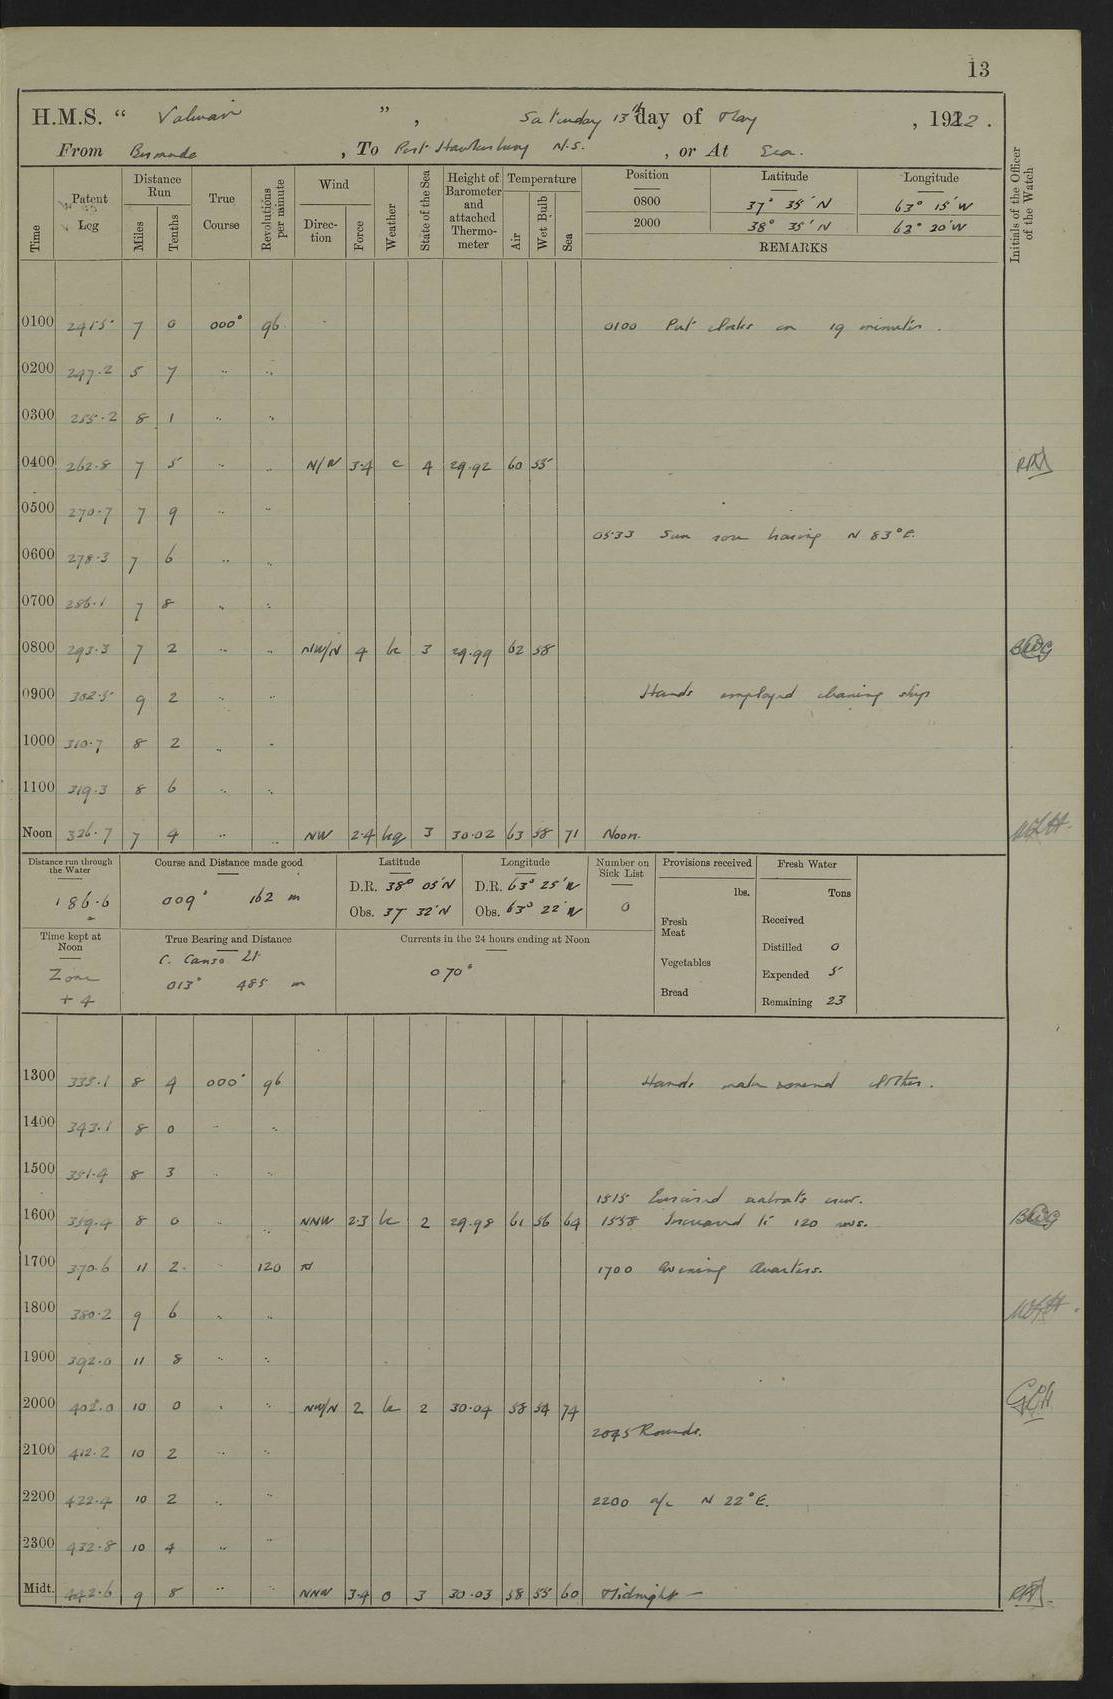 13
H.M.S. " Valerian ", Saturday 13th day of May, 1922.
From Bermuda, To Port Hawkesbury N.S., or At Sea.
Time Patent Log Distance Run Miles Tenths True Course Revolutions per minute Wind Direction Force Weather State of the Sea Height of Barometer and attached Thermometer Temperature Air Wet Bulb Sea Position Latitude Longitude Initials of the Officer of the Watch
0800 37° 35' N 63° 15' W
2000 38° 35' N 63° 20' W
REMARKS
0100 241.5 7 0 000° 96 0100 Put clocks on 19 minutes.
0200 247.2 5 7 " "
0300 255.2 8 1 " "
0400 262.8 7 5 " " N/W 3.4 c 4 29.92 60 55
0500 270.7 7 9 " "
0533 Sun rose bearing N 83° E.
0600 278.3 7 6 " "
0700 286.1 7 8 " "
0800 293.3 7 2 " " NW/N 4 bc 3 29.99 62 58
0900 302.5 9 2 " " Hands employed cleaning ship
1000 310.7 8 2 " "
1100 319.3 8 6 " "
Noon 326.7 7 4 " " NW 2.4 bcq 3 30.02 63 58 71 Noon.
Distance run through the Water Course and Distance made good Latitude Longitude Number on Sick List Provisions received Fresh Water
186.6 009° 162 m D.R. 38° 05' N D.R. 63° 25' W 0 lbs. Tons
Obs. 37 32' N Obs. 63° 22' W Fresh Meat Received
Time kept at Noon True Bearing and Distance Currents in the 24 hours ending at Noon Distilled 0
Zone + 4 C. Canso Lt 013° 485 m 070° Vegetables Expended 5
Bread Remaining 23
1300 335.1 8 4 000° 96 Hands make & mend clothes.
1400 343.1 8 0 " "
1500 351.4 8 3 " "
1515 Exercised seaboats crew.
1600 359.4 8 0 " " NNW 2.3 bc 2 29.98 61 56 64 1558 Increased to 120 revs.
1700 370.6 11 2 " 120 1700 Evening Quarters.
1800 380.2 9 6 " "
1900 392.0 11 8 " "
2000 402.0 10 0 " " NW/N 2 bc 2 30.04 58 54 74
2045 Rounds.
2100 412.2 10 2 " "
2200 422.4 10 2 " " 2200 a/c N 22° E.
2300 432.8 10 4 " "
Midt. 442.6 9 8 " " NNW 3.4 o 3 30.03 58 55 60 Midnight —